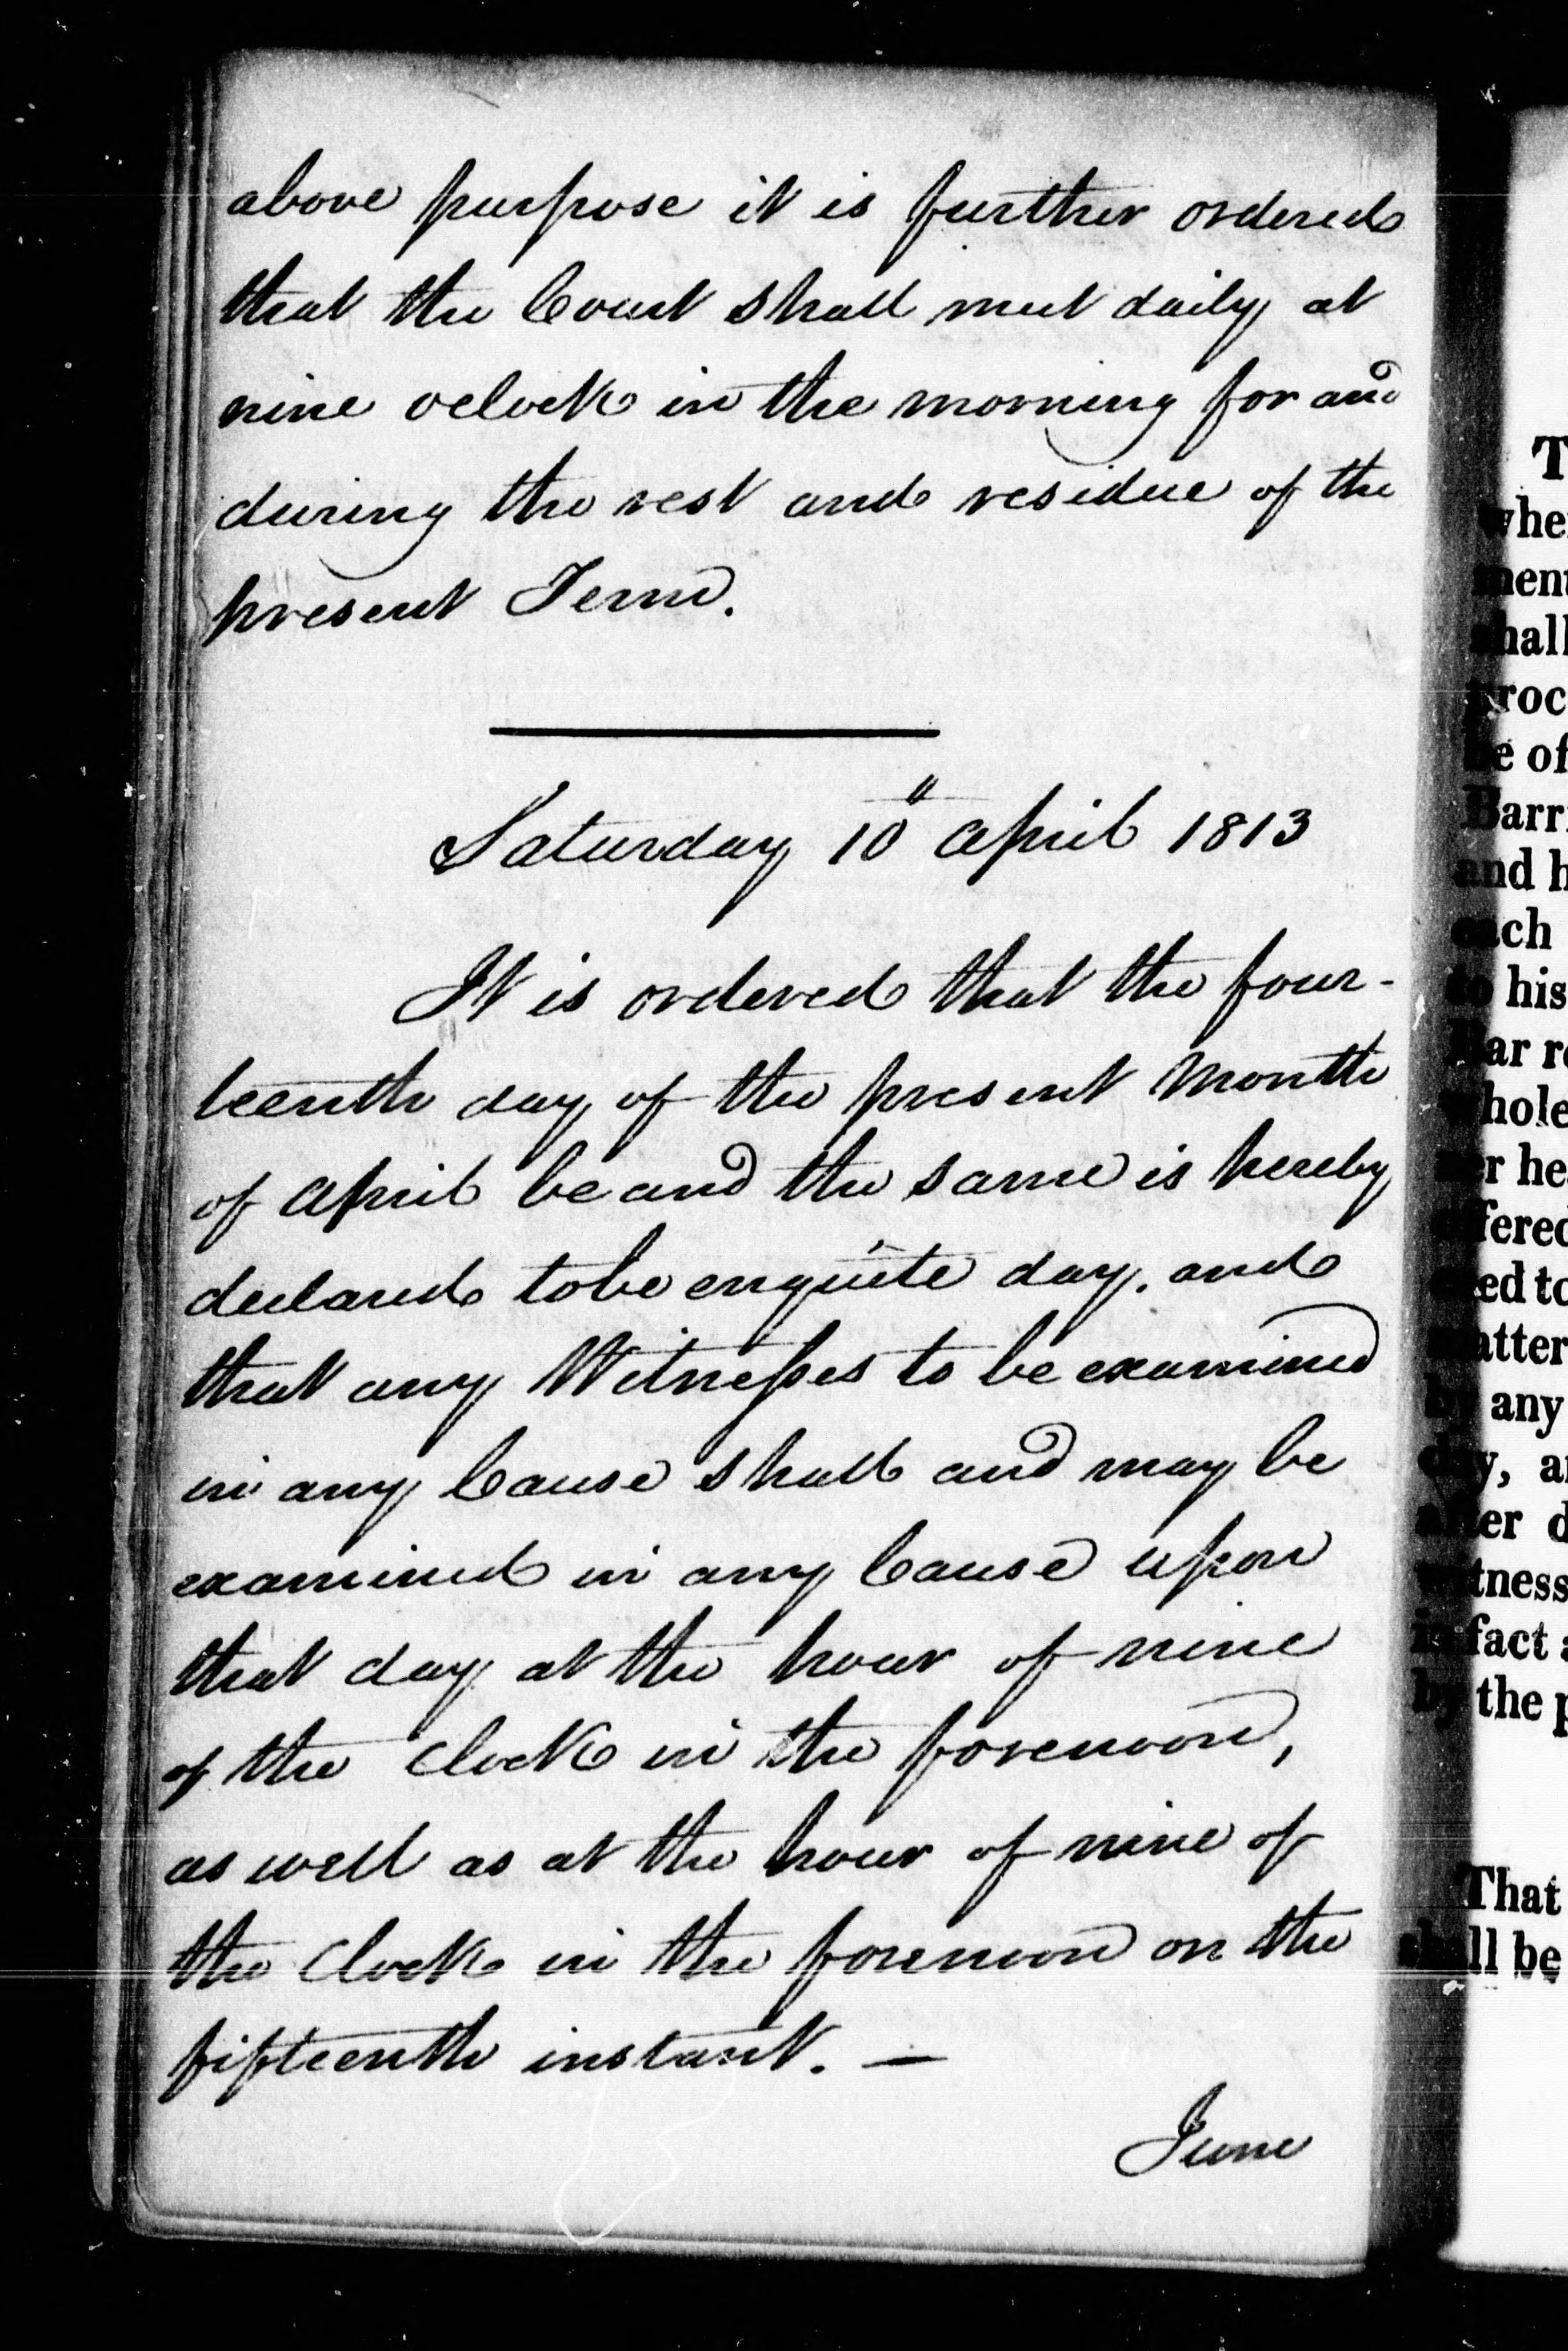 above purpose it is further ordered
that the Court shall meet daily at
nine oclock in the morning for and
during the rest and residue of the
present Term.
Saturday 10" April 1813
It is ordered that the four-
teenth day of the present Month
of April be and the same is hereby
declared to be enquête day. and
that any Witnesses to be examined
in any Cause shall and may be
examined in any Cause upon
that day at the hour of nine
of the Clock in the forenoon,
as well as at the hour of nine of
the Clock in the forenoon on the
fifteenth instant. —
June
T
whe
ment
shall
proc
be of
Barr
and h
each
to his
Bar re
whole
er he
offered
ed to
atter
by any
day, a
after d
witness
in fact
by the p
That
shall be